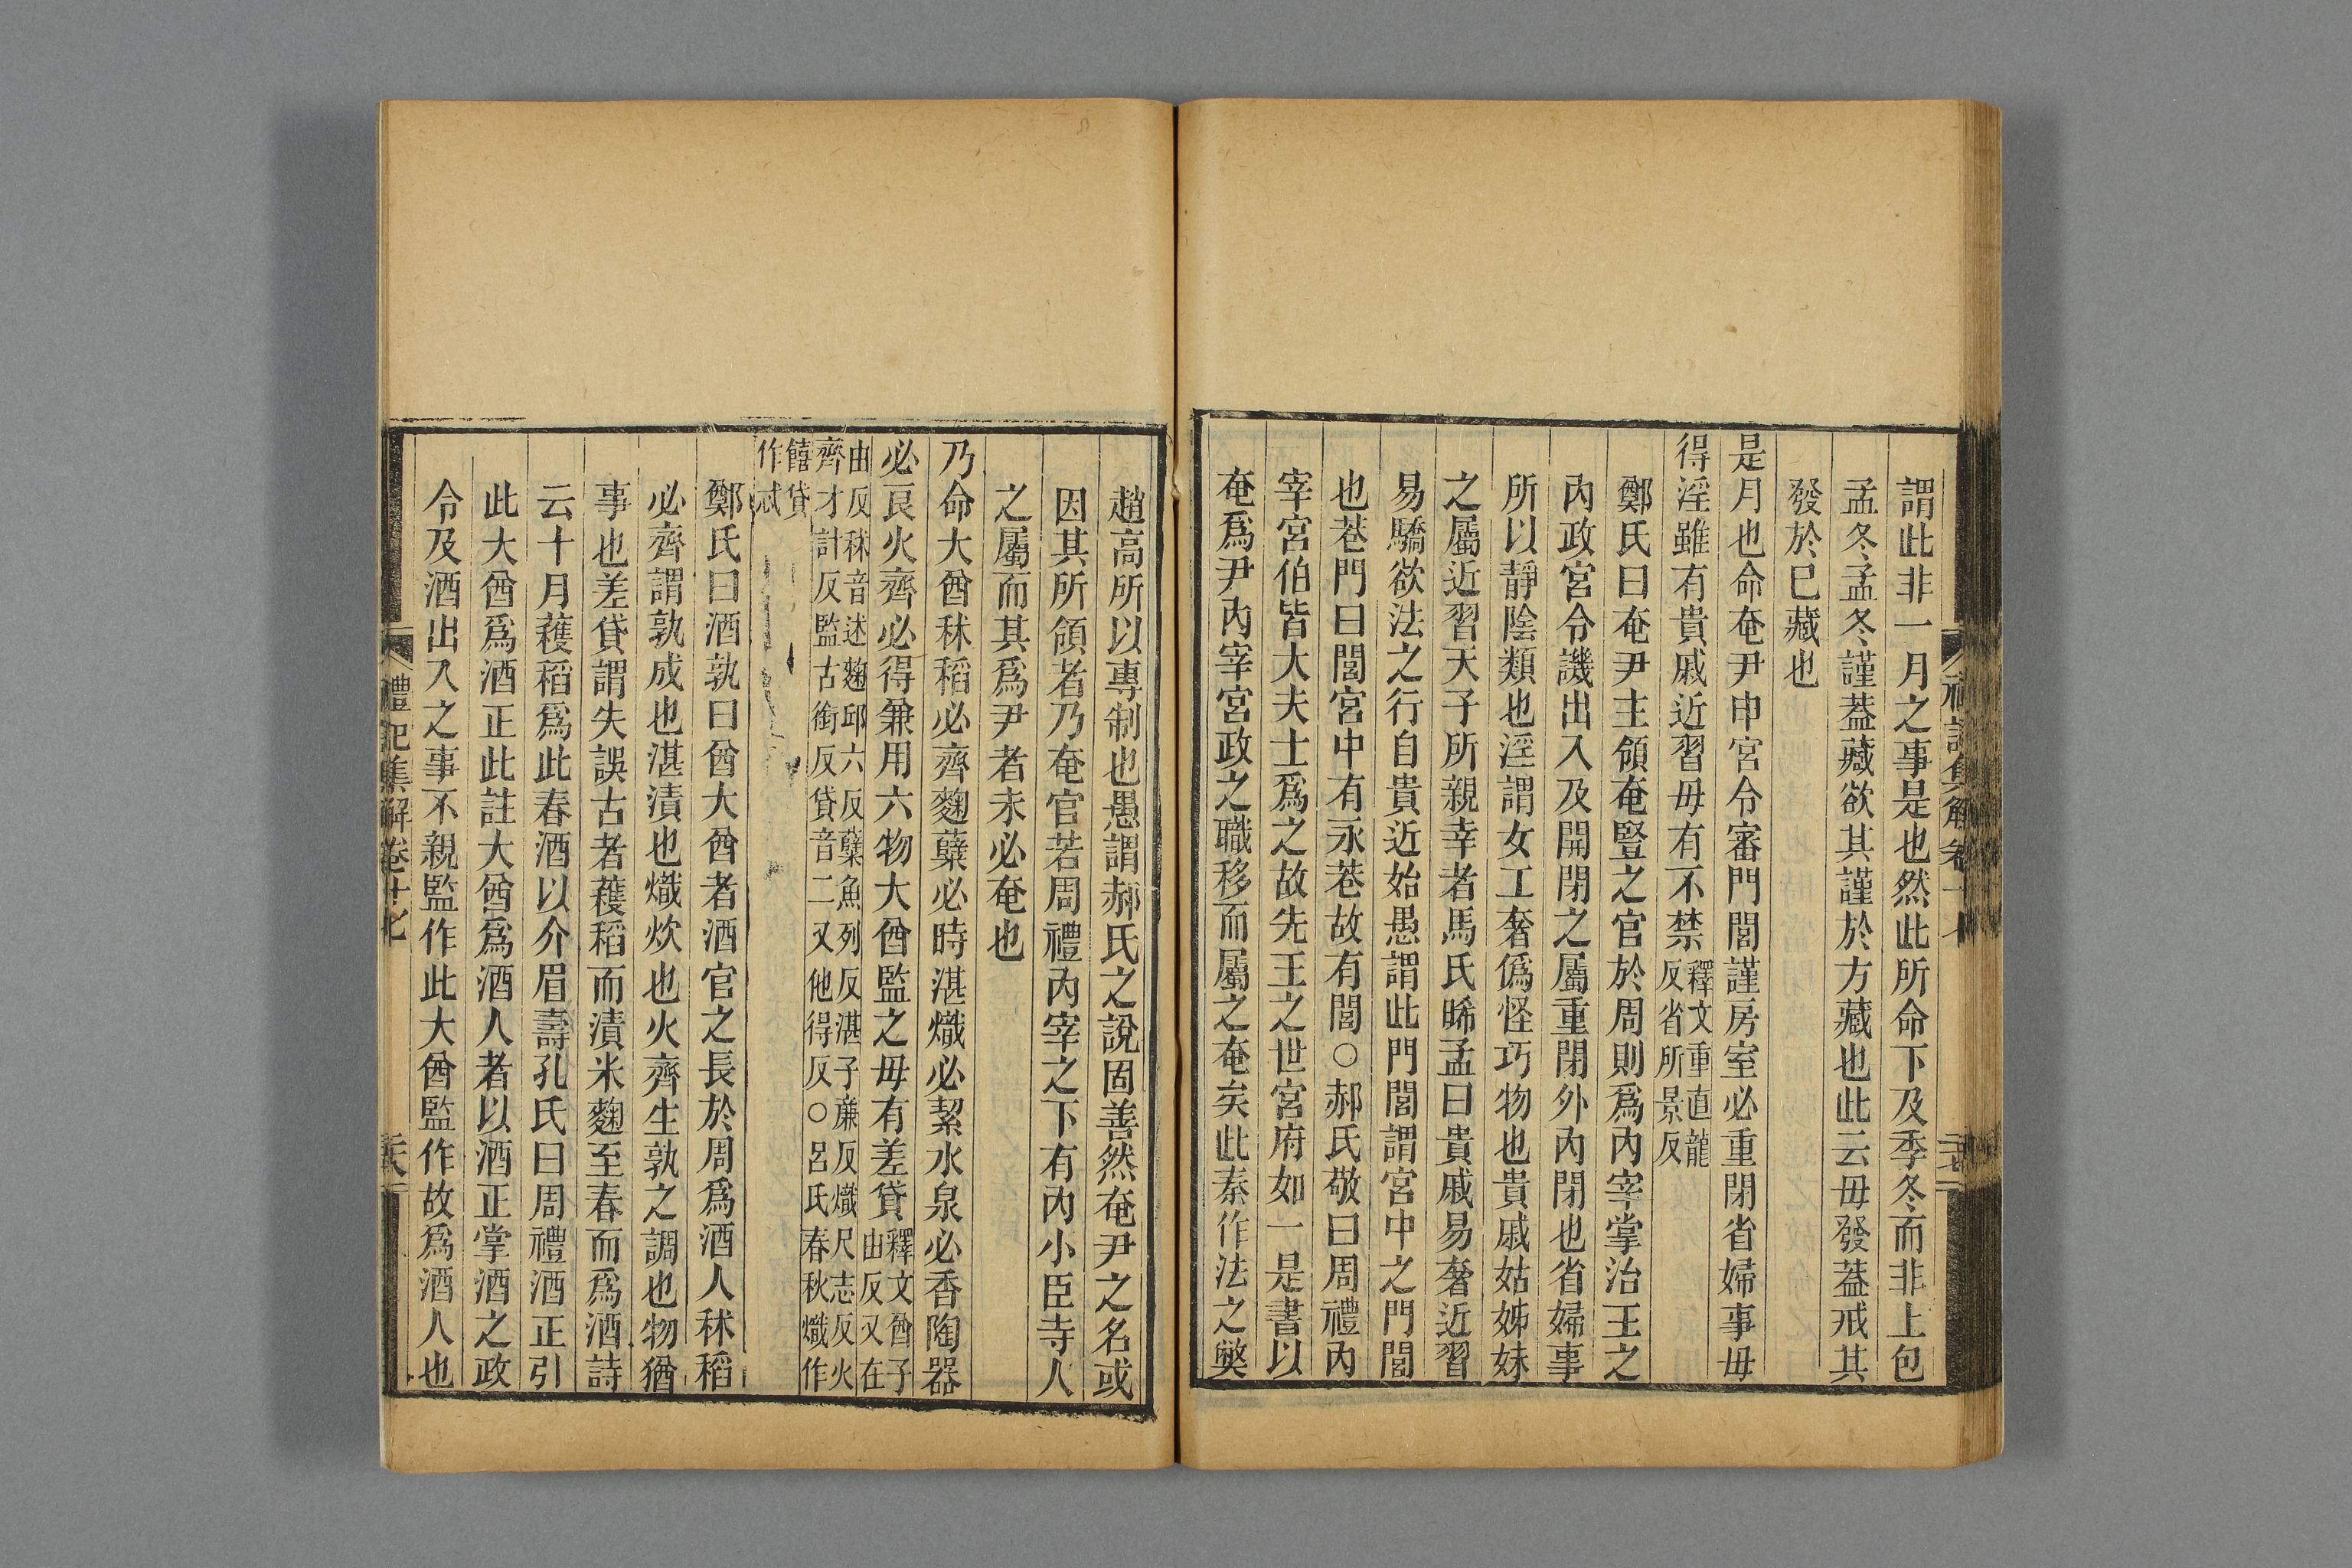 謂此非一月之事是也然此所命下及季冬而非上包
孟冬孟冬謹葢藏欲其謹於方藏也此云毋發葢戒其
發於已藏也
是月也命奄尹申宮令審門閭謹房室必重閉省婦事毋
得淫雖有貴戚近習毋有不禁釋文重直龍
反省所景反
鄭氏曰奄尹主領奄豎之官於周則爲內宰掌治王之
內政宮令譏出入及開閉之屬重閉外內閉也省婦事
所以靜陰類也淫謂女工奢僞怪巧物也貴戚姑姊妹
之屬近習天子所親幸者馬氏晞孟曰貴戚易奢近習
易驕欲法之行自貴近始愚謂此門閭謂宮中之門閭
也巷門曰閭宮中有永巷故有閭○郝氏敬曰周禮內
宰宮伯皆大夫士爲之故先王之世宮府如一是書以
奄爲尹內宰宮政之職移而屬之奄矣此秦作法之獘
趙高所以專制也愚謂郝氏之說固善然奄尹之名或
因其所領者乃奄官若周禮內宰之下有內小臣寺人
之屬而其爲尹者未必奄也
乃命大酋秫稻必齊麴櫱必時湛熾必絜水泉必香陶器
必良火齊必得兼用六物大酋監之毋有差貸釋文酋子
由反又在
由反秫音述麴邱六反櫱魚列反湛子廉反熾尺志反火
齊才計反監古銜反貸音二又他得反○呂氏春秋熾作
饎貸
作忒
鄭氏曰酒孰曰酋大酋者酒官之長於周爲酒人秫稻
必齊謂孰成也湛漬也熾炊也火齊生孰之調也物猶
事也差貸謂失誤古者穫稻而漬米麴至春而爲酒詩
云十月穫稻爲此春酒以介眉壽孔氏曰周禮酒正引
此大酋爲酒正此註大酋爲酒人者以酒正掌酒之政
令及酒出入之事不親監作此大酋監作故爲酒人也
禮記集解卷十七